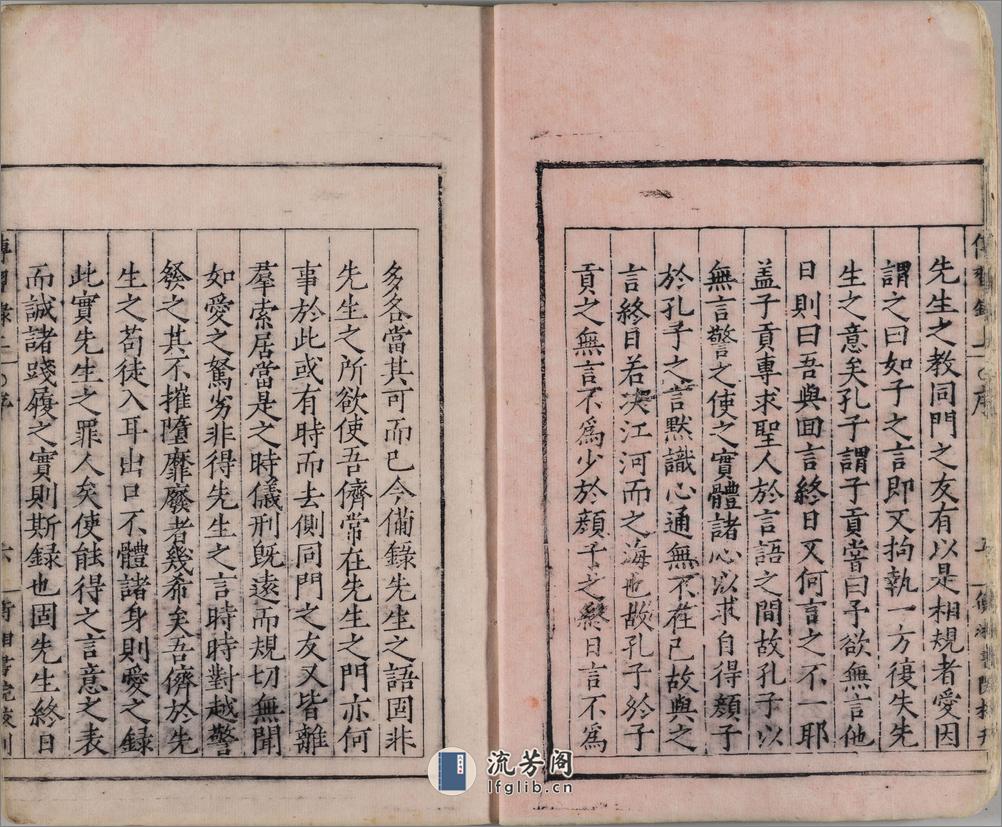 先生之教同門之友有以是相規者愛因
謂之曰如子之言即又拘執一方復失先
生之意矣孔子謂子貢嘗曰予欲無言他
日則曰吾與囬言終日又何言之不一耶
盖子貢專求聖人於言語之間故孔子以
無言警之使之實體諸心以求自得顔子
於孔子之言默識心通無不在已故與之
言終日若决江河而之海也故孔子於子
貢之無言不爲少於顔子之終日言不爲
多各當其可而已今備錄先生之語固非
先生之所欲使吾儕常在先生之門亦何
事於此或有時而去側同門之友又皆離
羣索居當是之時儀刑旣遠而規切無聞
如愛之駑劣非得先生之言時時對越警
發之其不摧墮靡廢者幾希矣吾儕於先
生之言苟徒入耳出口不體諸身則愛之錄
此實先生之罪人矣使能得之言意之表
而誠諸踐履之實則斯録也固先生終日
傳習錄上
序
六
衡湘書院校刊
流芳阁
lfglib.cn